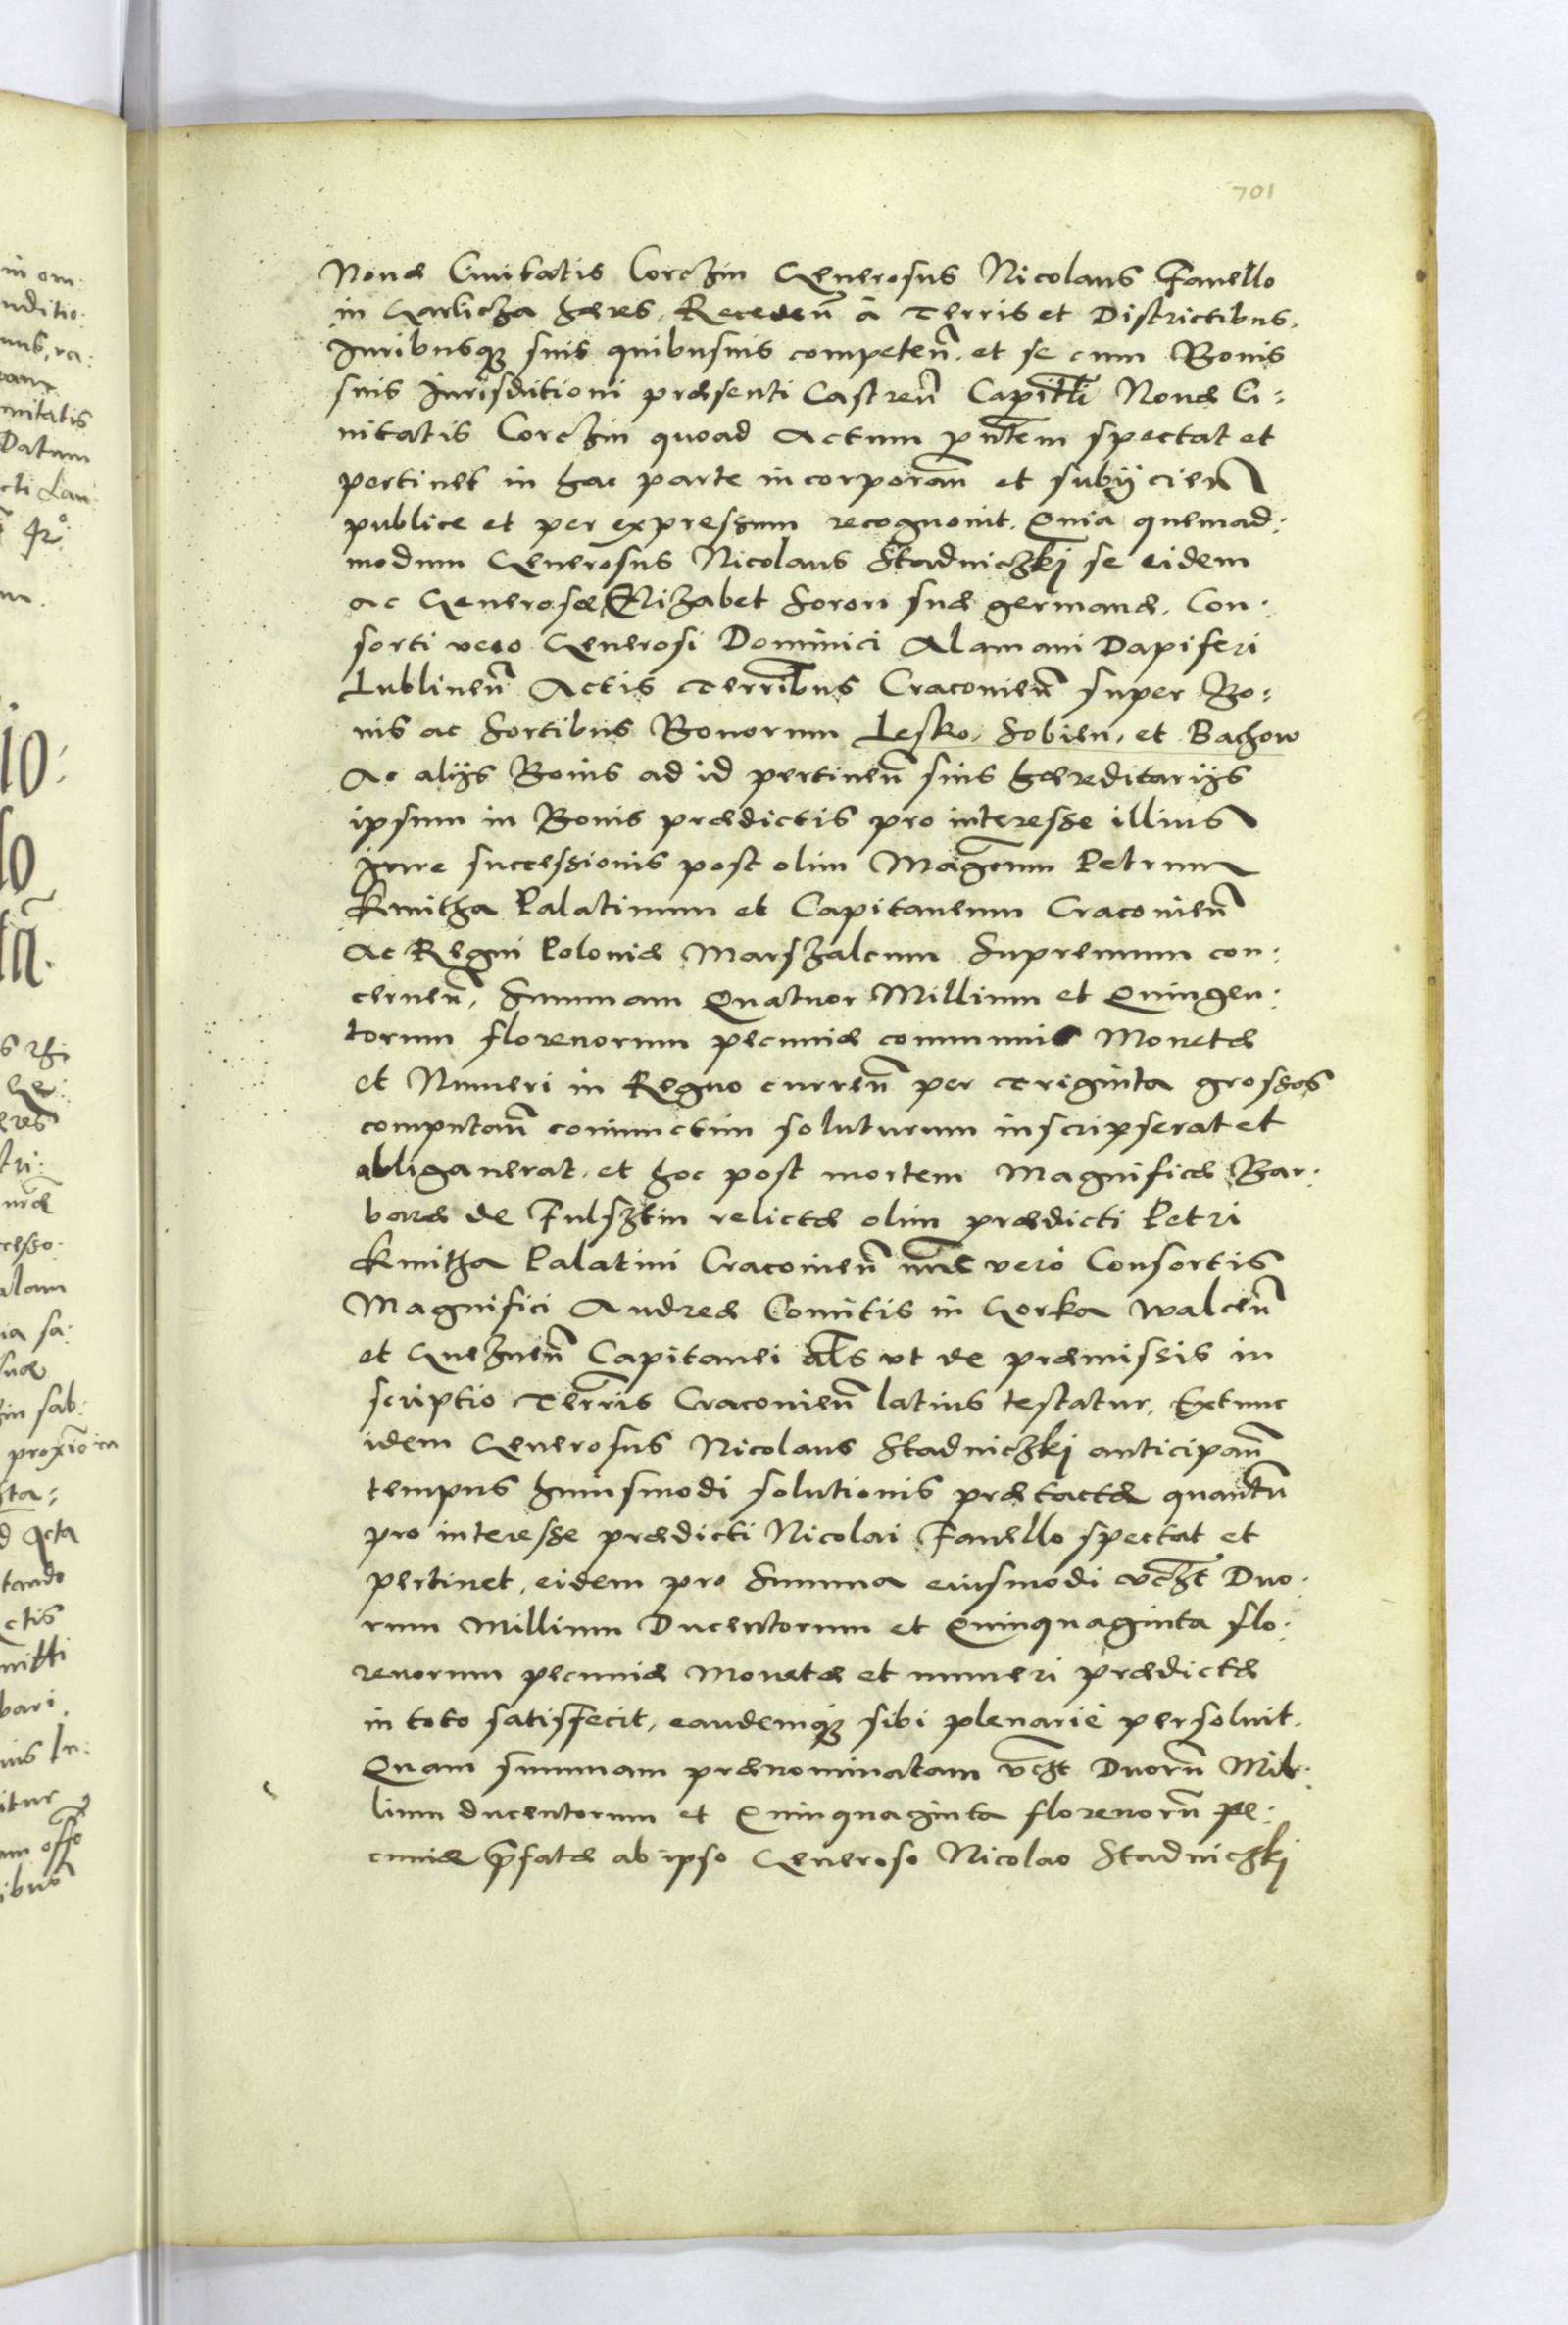 701
Nouæ Ciuitatis Corchin Generosus Nicolaus Fanello
in Garlicza hæres, Receden̄ à Terris et Districtibus,
Iuribusq3 suis quibusuis competen̄. et se cum Bonis
suis Iurisditioni præsenti Castren̄ Capitli Nouæ Ci=
uitatis Corchin quoad Actum pn̄tem spectat et
pertinet in hac parte incorporan̄ et subijcien̄
publice et per expressum recognouit. Quia quemad:
modum Generosus Nicolaus Stadniczkj se eidem
ac Generosæ Elizabet Sorori suæ germanæ, Con:
sorti vero Generosi Dominici Alamani Dapiferi
Lublinen̄ Actis Terribus Cracouien̄ super Bo=
nis ac Sortibus Bonorum Lesko, Sobien, et Bachow
Ac alijs Bonis ad id pertinen̄ suis hæreditarijs
ipsum in Bonis prædictis pro interesse illius
Iure successionis post olim Magcum Petrum
Kmitha Palatinum et Capitaneum Cracouien̄
Ac Regni Poloniæ Marszalcum Supremum con:
cernen̄, Summam Quatuor Millium et Quingen:
torum florenorum pecuniæ communis Monetæ
et Numeri in Regno curren̄ per Triginta grossos
computan̄ coniunctim soluturum inscripserat et
obligauerat. et hoc post mortem Magnificæ Bar:
baræ de Fulsztin relictæ olim prædicti Petri
Kmitha Palatini Cracouien̄ nūc verò Consortis
Magnifici Andreæ Comitis in Gorka Walcen̄
et Gneznen̄ Capitanei als vt de præmissis in
scriptio Terris Cracouien̄ latius testatur, Extunc
idem Generosus Nicolaus Stadniczkj anticipan̄
tempus huiusmodi solutionis prætactæ quantū
pro interesse prædicti Nicolai Fanello spectat et
pertinet, eidem pro Summa eiusmodi vczt Duo:
rum Millium Ducentorum et Quinquaginta flo:
renorum pecuniæ Monetæ et numeri prædictæ
in toto satisfecit, eandemq3 sibi plenariè persoluit.
Quam summam prænominatam vczt Duorū Mil:
lium ducentorum et Quinquaginta florenorū pe:
cuniæ p̄fatæ ab ipso Generoso Nicolao Stadniczkj